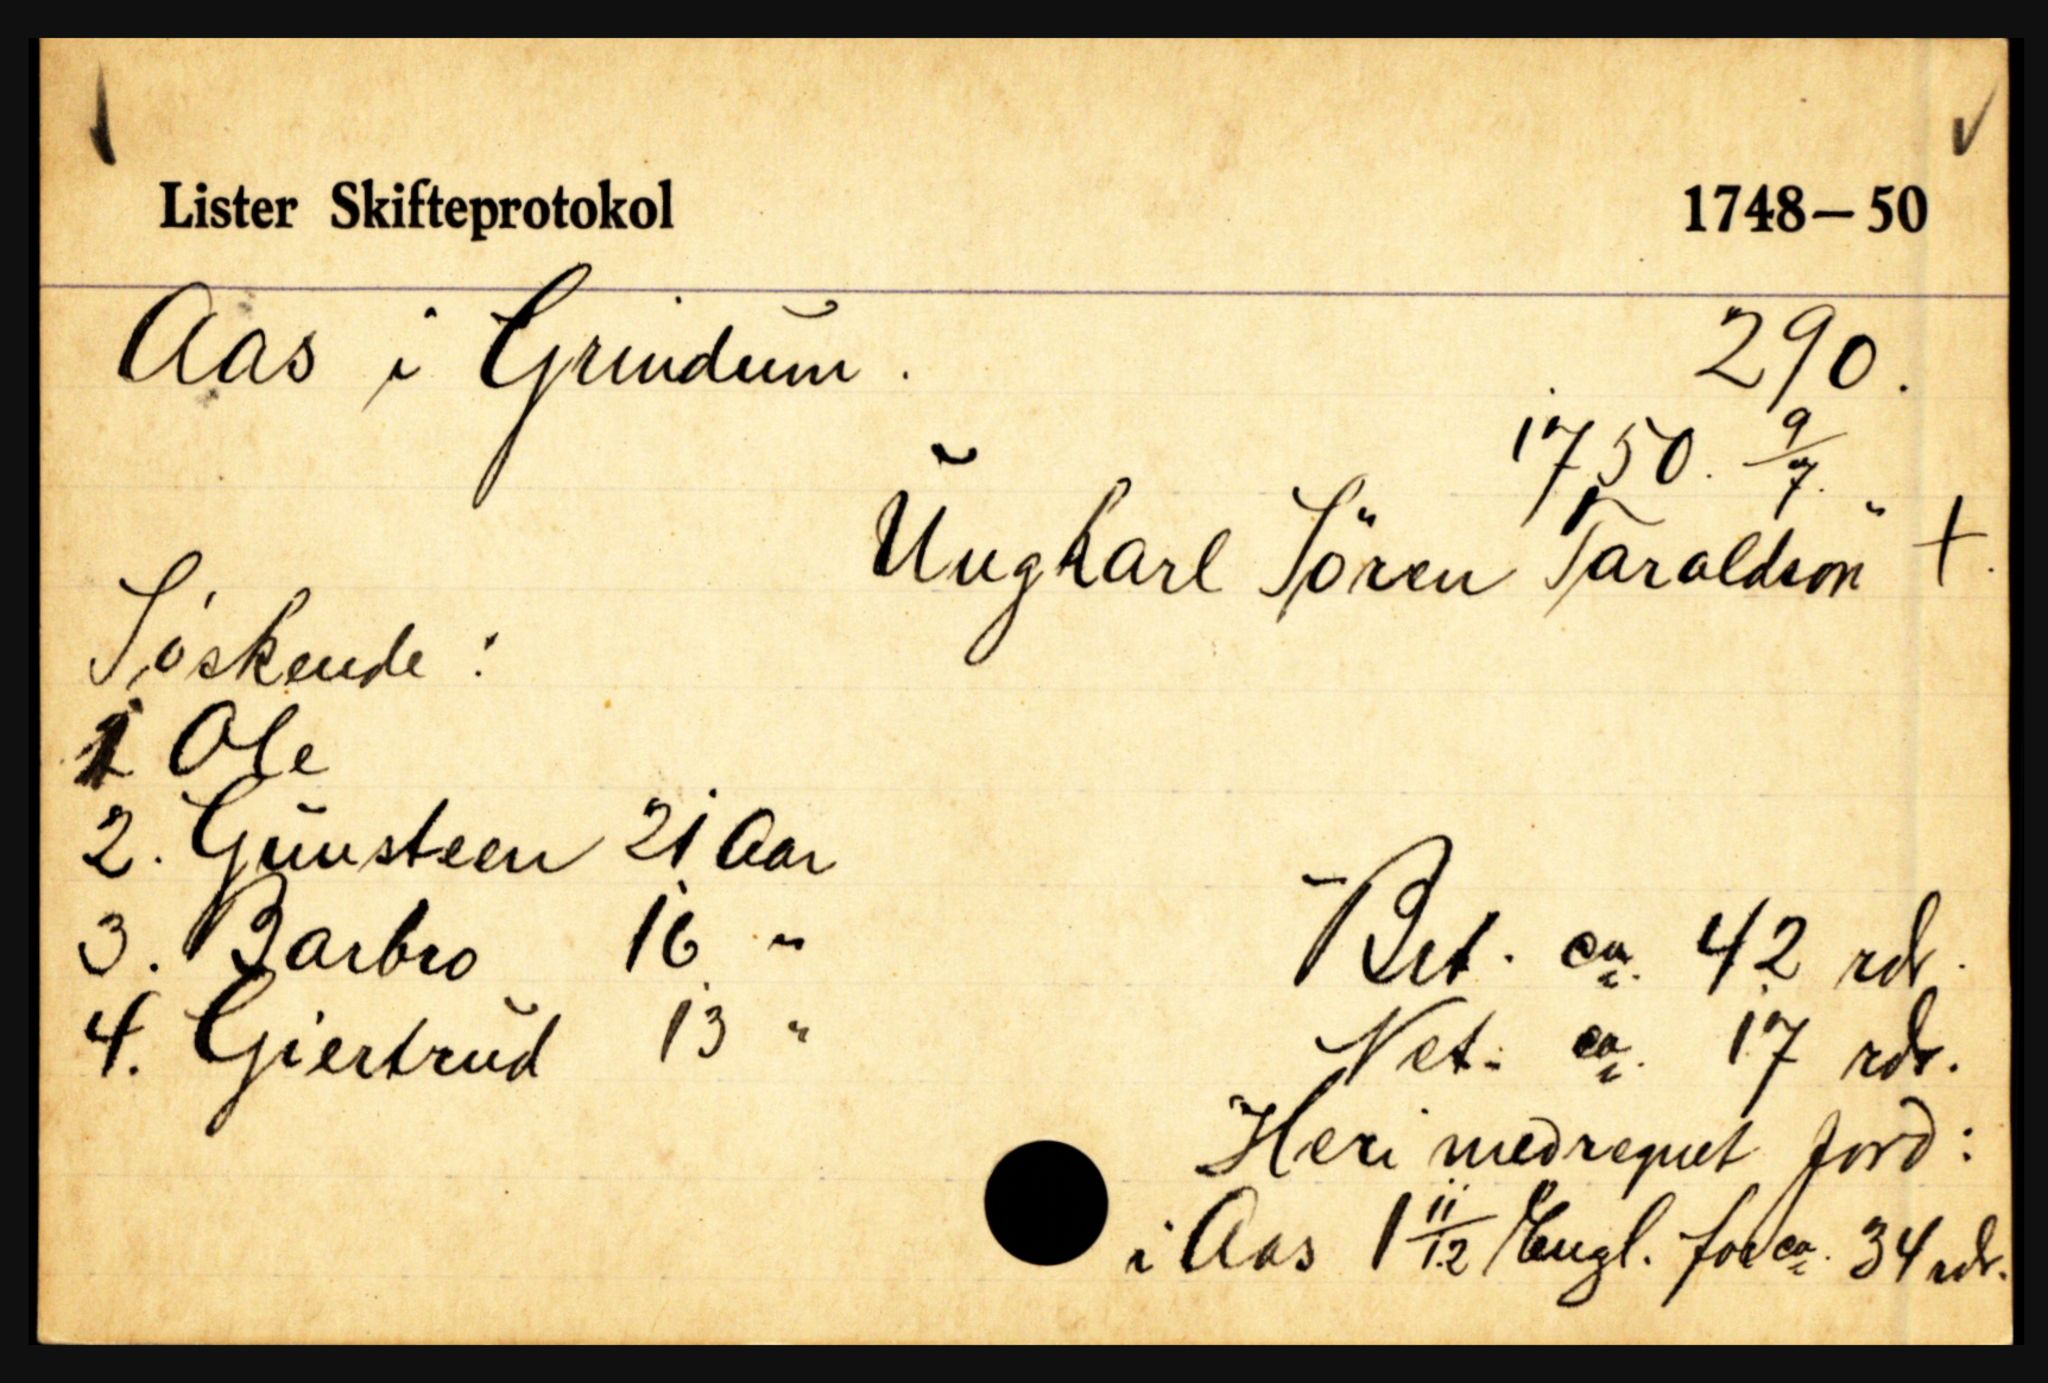 Lister Skifteprotokol 1748–50
Aas i Grindum. 290.
1750. 9/7.
Ungkarl Sören Taraldsön +.
Söskende:
1 Ole
2. Gunsteen 21 Aar
3. Barbro 16 "
4. Giertrud 13 "
Brt. ca. 42 rdr.
Net. ca. 17 rdr.
Heri medregnet Jord:
i Aas 1 11/12 Engl. for ca. 34 rdr.